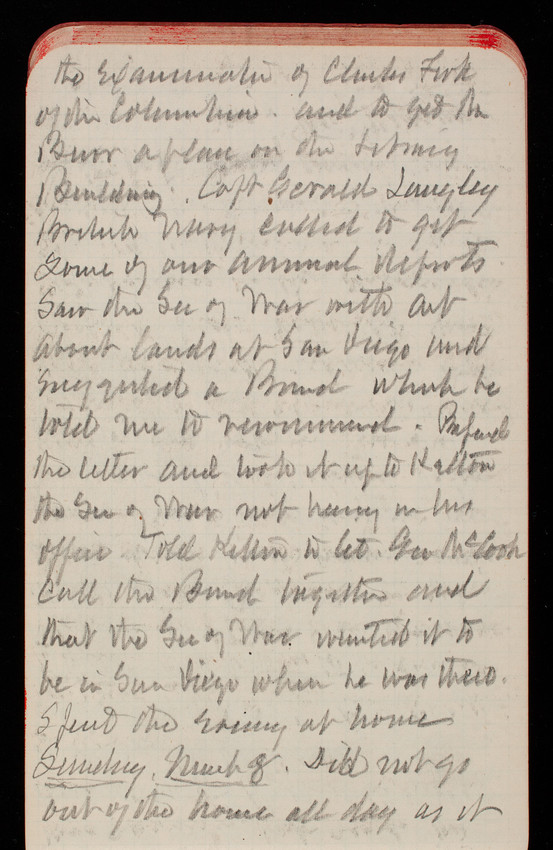 the Examination of Charles Fisk
of the Columbia. and to get the
Burr a place on the Library
Building. Capt Gerald Langley
British Navy called to get
some of our Annual Reports
Saw the Sec of War with Act
about lands at San Diego and
suggested a Board which he
told me to recommend. Prepared
the letter and took it up to Kelton
the Sec of War not being in his
office Told Kelton to let Gen McCook
call the Board together and
that the Sec of War wanted it to
be in San Diego when he was there.
Spent the evening at home
Sunday, March 8. Did not go
out of the house all day as it